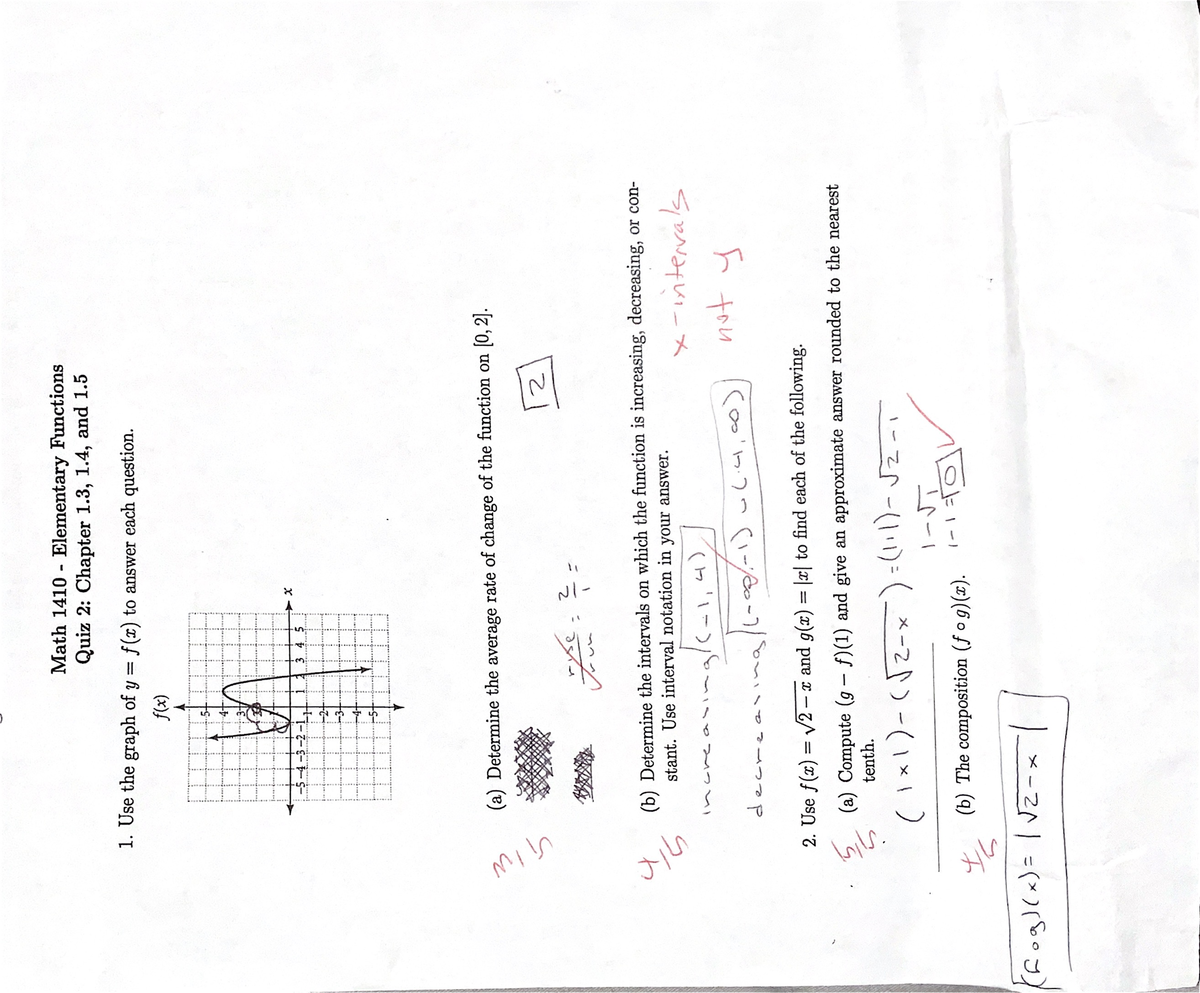 Math 1410 - Elementary Functions
Quiz 2: Chapter 1.3, 1.4, and 1.5
1. Use the graph of y = f(x) to answer each question.
f(x)
5
4
3
-5 -4 -3 -2 -1 1 2 3 4 5 x
-1
-2
-3
-4
-5
(a) Determine the average rate of change of the function on [0, 2].
3/5
rise/run = 2/1 = 2
(b) Determine the intervals on which the function is increasing, decreasing, or con-
stant. Use interval notation in your answer.
4/5
x-intervals
not y
increasing (-1, 4)
decreasing (-∞, -1) ∪ (4, ∞)
2. Use f(x) = √2 − x and g(x) = |x| to find each of the following.
(a) Compute (g − f)(1) and give an approximate answer rounded to the nearest
tenth.
5/5
(|x|) - (√2-x) = (|1|) - √2-1
1-√1
1-1 = 0
(b) The composition (f ∘ g)(x).
4/5
(f∘g)(x) = |√2-x|